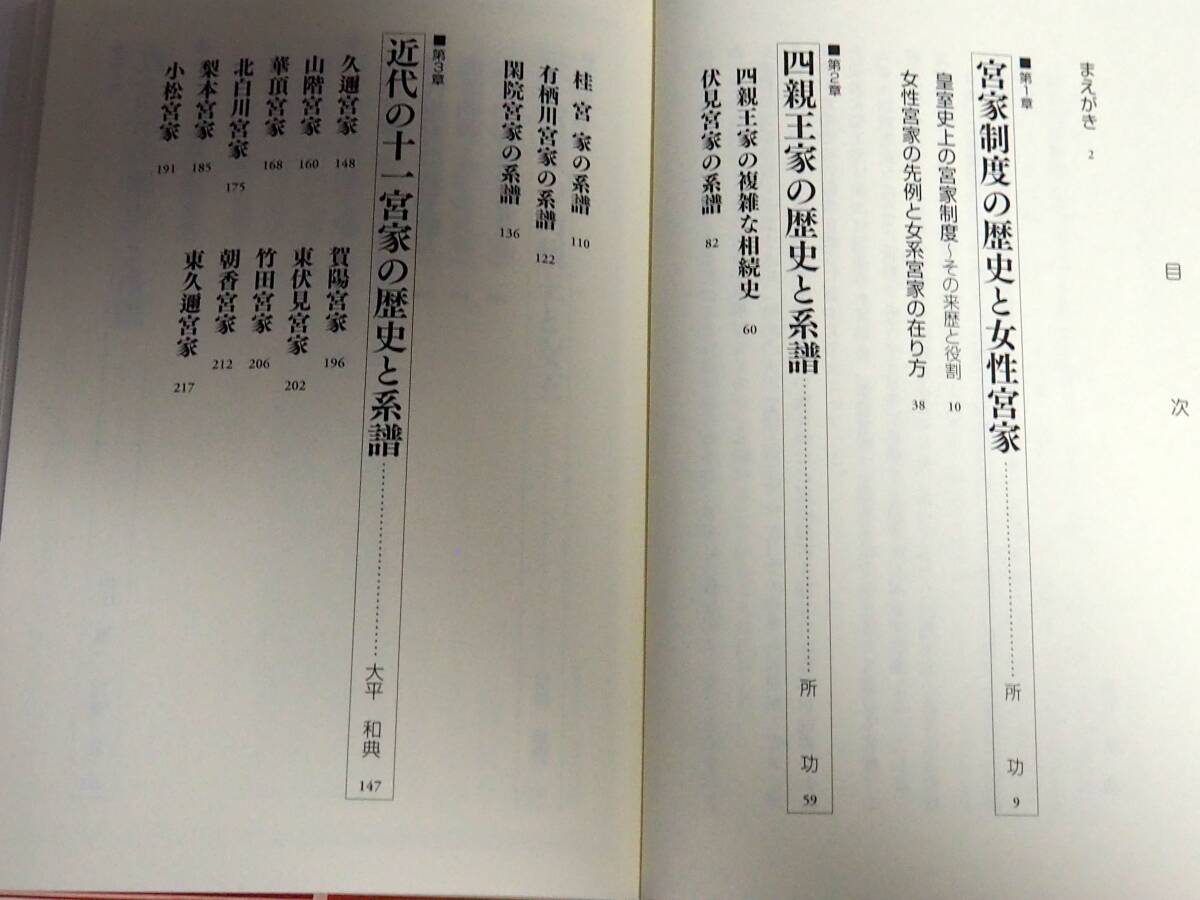 目次
まえがき 2
■第1章
宮家制度の歴史と女性宮家……………所 功 9
皇室史上の宮家制度～その来歴と役割 10
女性宮家の先例と女系宮家の在り方 38
■第2章
四親王家の歴史と系譜……………所 功 59
四親王家の複雑な相続史 60
伏見宮家の系譜 82
桂宮家の系譜 110
有栖川宮家の系譜 122
閑院宮家の系譜 136
■第3章
近代の十一宮家の歴史と系譜……………大平 和典 147
久邇宮家 148
山階宮家 160
華頂宮家 168
北白川宮家 175
梨本宮家 185
小松宮家 191
賀陽宮家 196
東伏見宮家 202
竹田宮家 206
朝香宮家 212
東久邇宮家 217